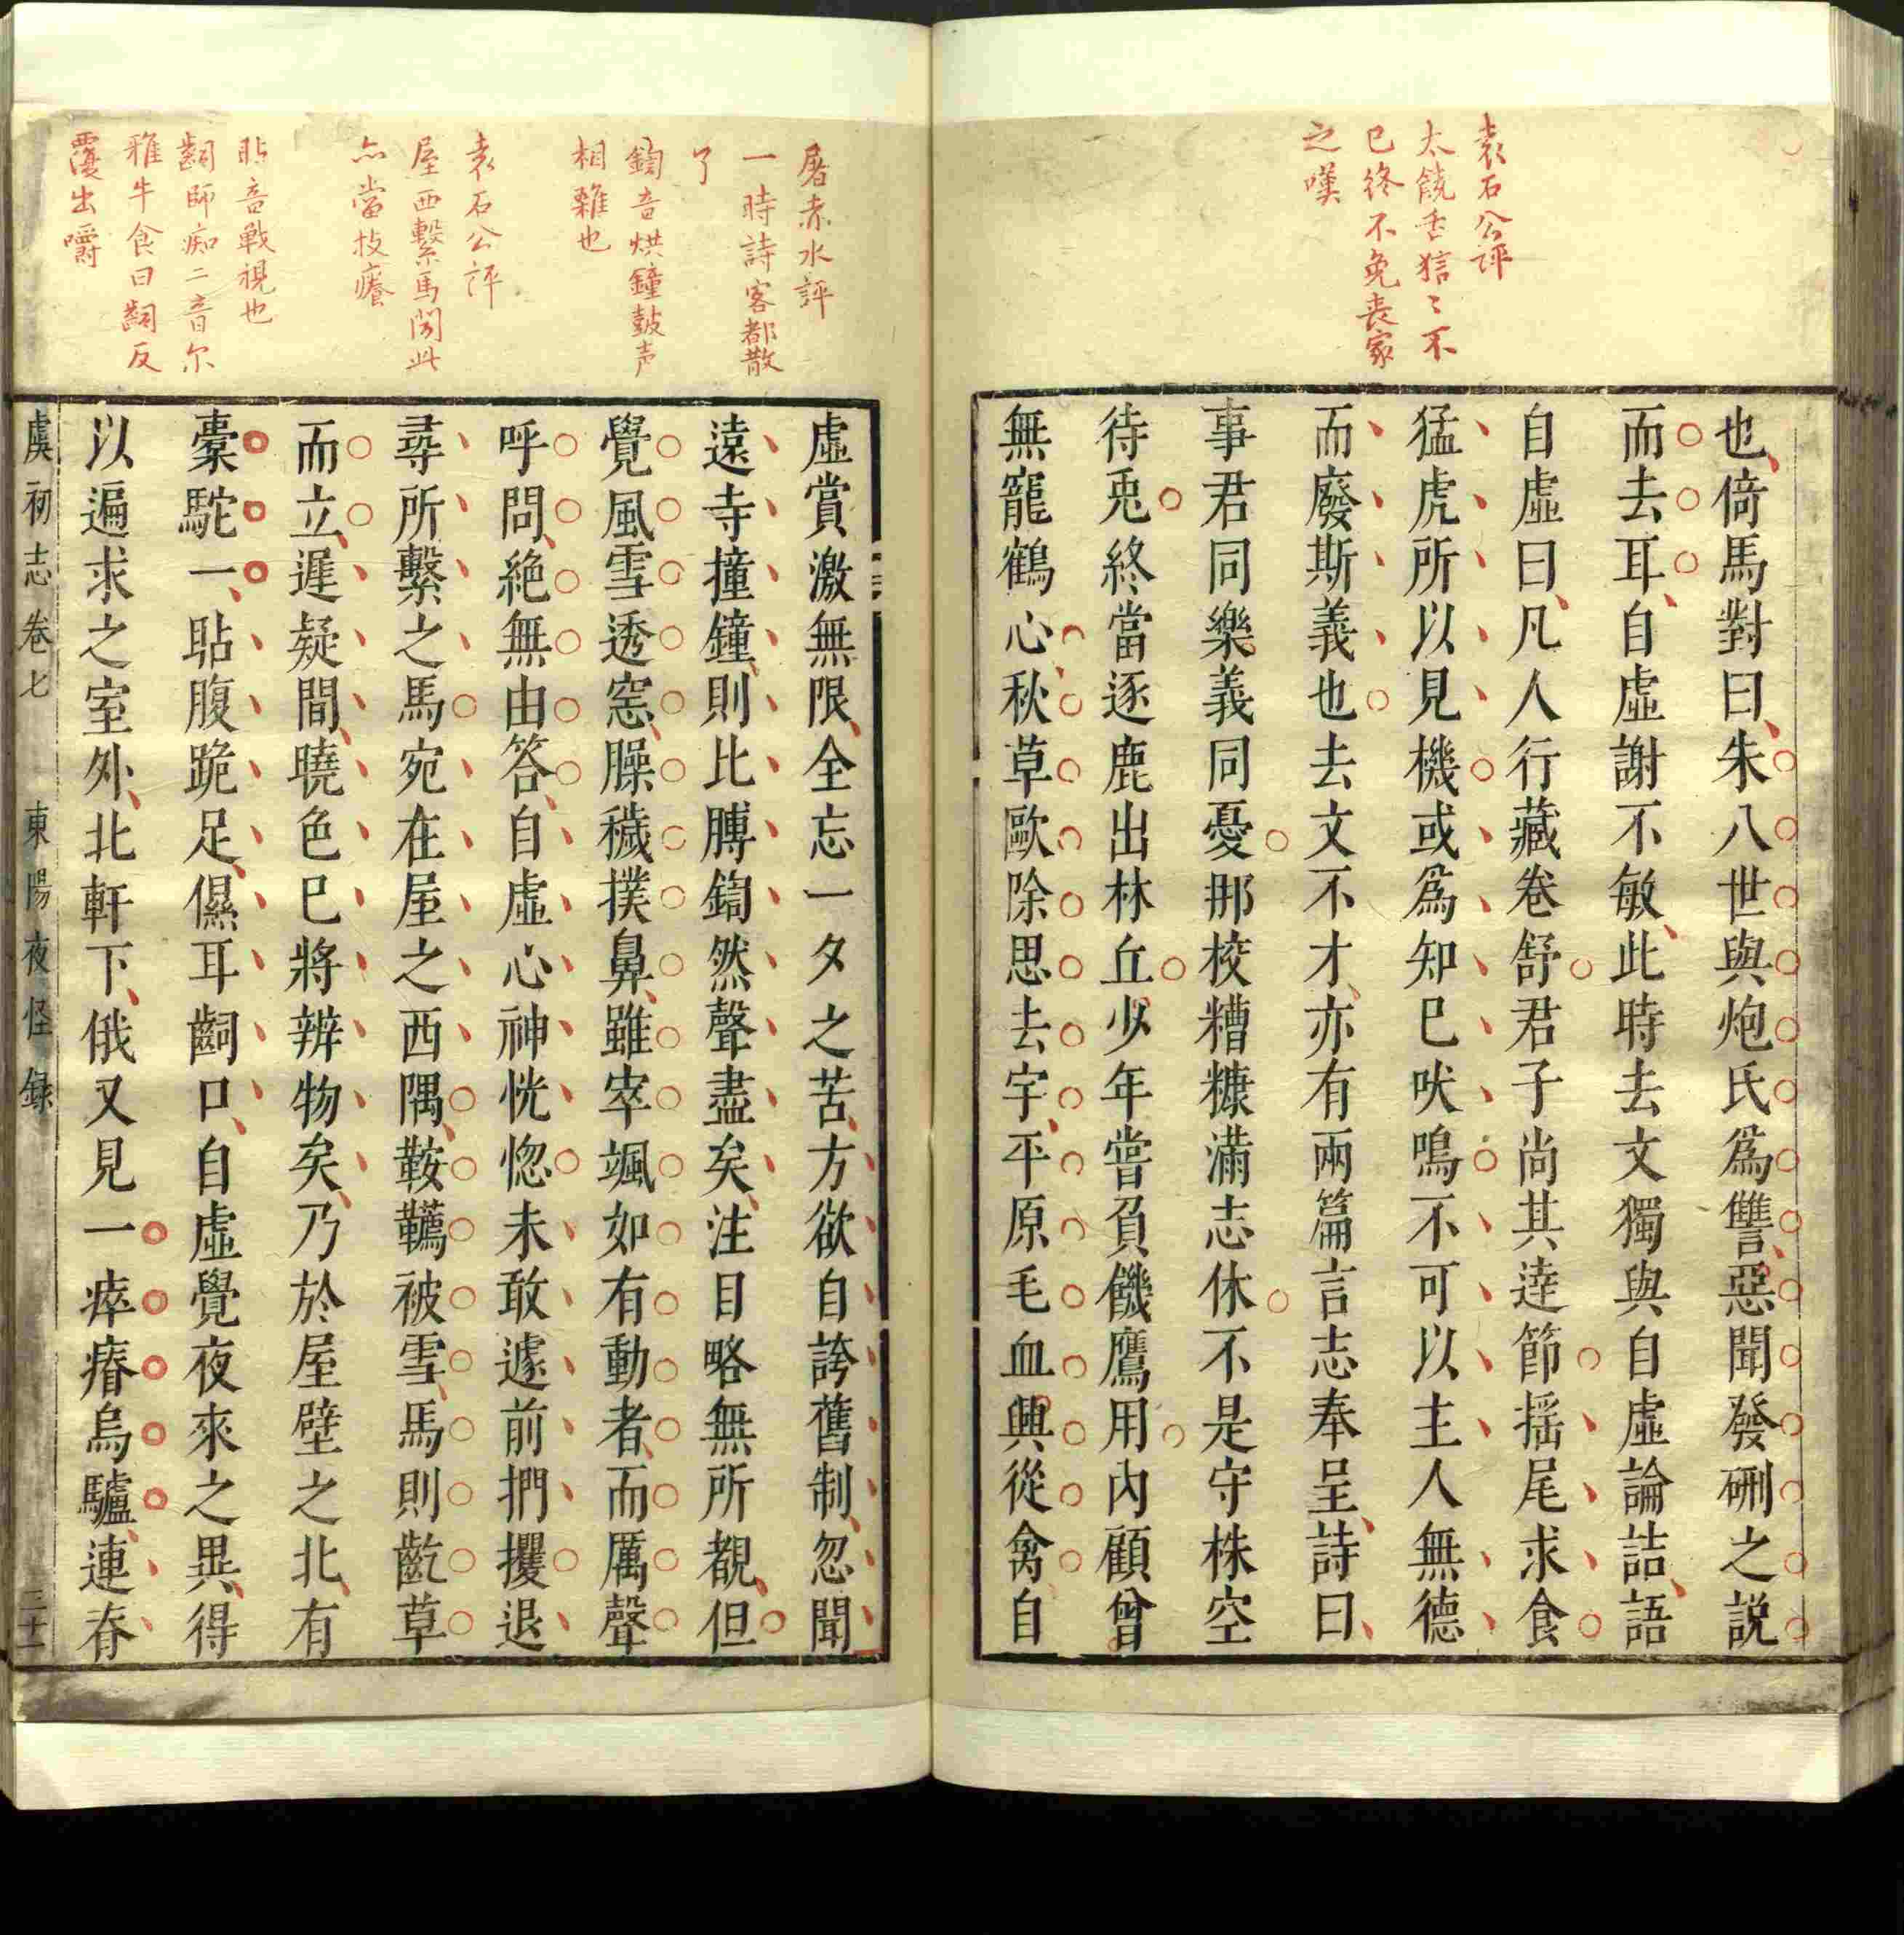 袁石公評
太饒舌狺〻不
已終不免喪家
之嘆
也倚馬對曰朱八世與炮氏爲讐惡聞發硎之説
而去耳自虛謝不敏此時去文獨與自虛論詰語
自虛曰凡人行藏卷舒君子尚其達節揺尾求食
猛虎所以見機或爲知巳吠鳴不可以主人無德
而廢斯義也去文不才亦有兩篇言志奉呈詩曰
事君同樂義同憂那校糟糠滿志休不是守株空
待兎終當逐鹿出林丘少年嘗負饑鷹用内顧曾
無寵鶴心秋草歐除思去宇平原毛血興從禽自
屠赤水評
一時詩客都散
了
鍧音烘鐘鼓声
相雜也
袁石公評
屋西繫馬聞此
亦當技癢
貼音戰視也
齝師痴二音尔
雅牛食曰齝反
覆出嚼
虛賞激無限全忘一夕之苦方欲自誇舊制忽聞
遠寺撞鐘則比膊鍧然聲盡矣注目略無所覩但
覺風雪透窓臊穢撲鼻雖窣颯如有動者而厲聲
呼問絶無由答自虛心神恍惚未敢遽前捫攖退
尋所繫之馬宛在屋之西隅鞍韉被雪馬則齕草
而立遲疑間曉色巳將辨物矣乃於屋壁之北有
橐駝一貼腹跪足儑耳齝口自虛覺夜來之異得
以遍求之室外北軒下俄又見一瘁瘠烏驢連脊
虞初志卷七 東陽夜怪録 三十一